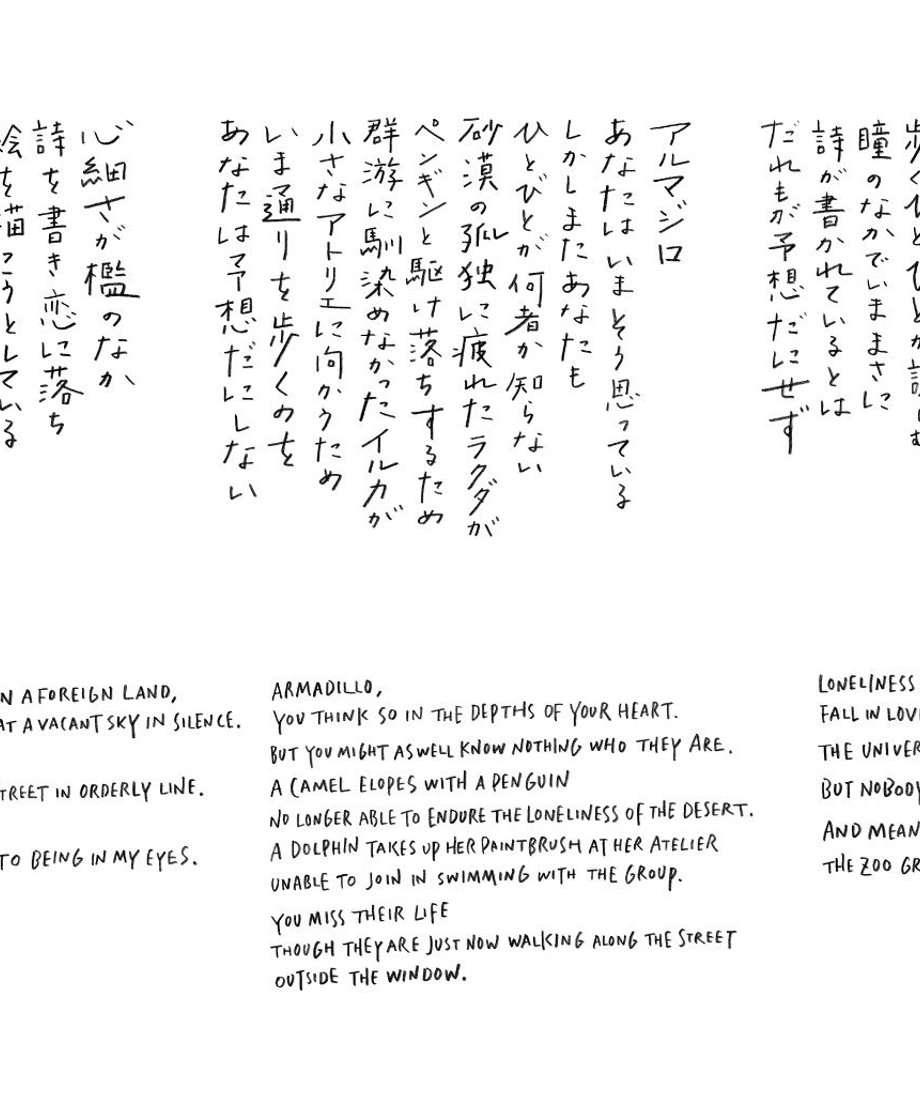 歩くひとびとが
瞳のなかでいままさに
詩が書かれているとは
だれもが予想だにせず
アルマジロ
あなたはいまそう思っている
しかしまたあなたも
ひとびとが何者か知らない
砂漠の孤独に疲れたラクダが
ペンギンと駆け落ちするため
群游に馴染めなかったイルカが
小さなアトリエに向かうため
いま通りを歩くのを
あなたは予想だにしない
心細さが檻のなか
詩を書き恋に落ち
絵を描こうとしている
N A FOREIGN LAND,
AT A VACANT SKY IN SILENCE.
TREET IN ORDERLY LINE.
TO BEING IN MY EYES.
ARMADILLO,
YOU THINK SO IN THE DEPTHS OF YOUR HEART.
BUT YOU MIGHT AS WELL KNOW NOTHING WHO THEY ARE.
A CAMEL ELOPES WITH A PENGUIN
NO LONGER ABLE TO ENDURE THE LONELINESS OF THE DESERT.
A DOLPHIN TAKES UP HER PAINTBRUSH AT HER ATELIER
UNABLE TO JOIN IN SWIMMING WITH THE GROUP.
YOU MISS THEIR LIFE
THOUGH THEY ARE JUST NOW WALKING ALONG THE STREET
OUTSIDE THE WINDOW.
LONELINESS
FALL IN LOV
THE UNIVER
BUT NOBODY
AND MEAN
THE ZOO GR